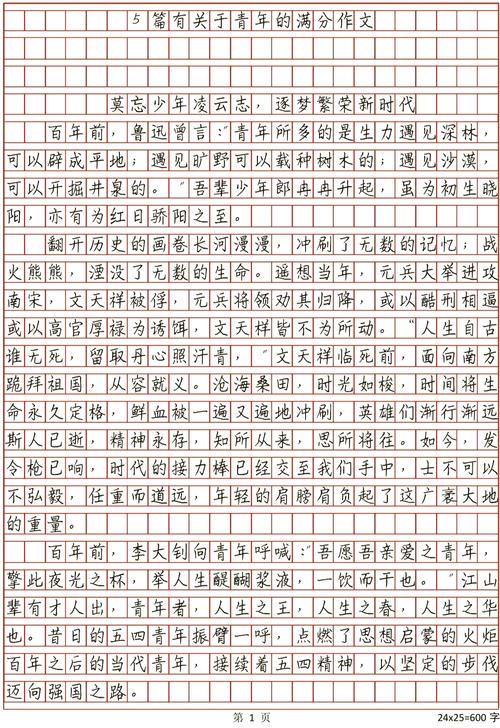 5篇有关于青年的满分作文
莫忘少年凌云志，逐梦繁荣新时代
百年前，鲁迅曾言：“青年所多的是生力遇见深林，
可以辟成平地；遇见旷野可以载种树木的；遇见沙漠，
可以开掘井泉的。”吾辈少年郎冉冉升起，虽为初生晓
阳，亦有为红日骄阳之至。
翻开历史的画卷长河漫漫，冲刷了无数的记忆；战
火熊熊，湮没了无数的生命。遥想当年，元兵大举进攻
南宋，文天祥被俘，元兵将领劝其归降，或以酷刑相逼
或以高官厚禄为诱饵，文天祥皆不为所动。“人生自古
谁无死，留取丹心照汗青，”文天祥临死前，面向南方
跪拜祖国，从容就义。沧海桑田，时光如梭，时间将生
命永久定格，鲜血被一遍又遍地冲刷，英雄们渐行渐远
斯人已逝，精神永存，知所从来，思所将往。如今，发
令枪已响，时代的接力棒已经交至我们手中，士不可以
不弘毅，任重而道远，年轻的肩膀肩负起了这广袤大地
的重量。
百年前，李大钊向青年呼喊：“吾愿吾亲爱之青年，
擎此夜光之杯，举人生醍醐浆液，一饮而干也。”江山
辈有才人出，青年者，人生之王，人生之春，人生之华
也。昔日的五四青年振臂一呼，点燃了思想启蒙的火炬
百年之后的当代青年，接续着五四精神，以坚定的步伐
迈向强国之路。
第 1 页 24x25=600 字